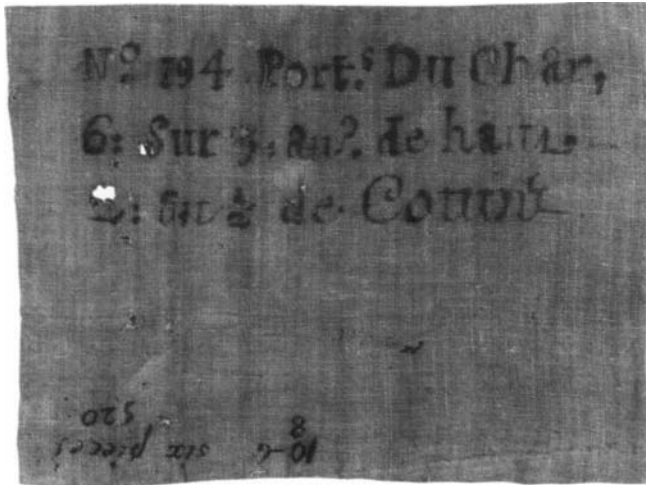 Nº 194 Port.s Du Char,
6: Sur 3: au.s de haut.
2: Sur ½ de Cour.t
six pièces 10-6
520 8